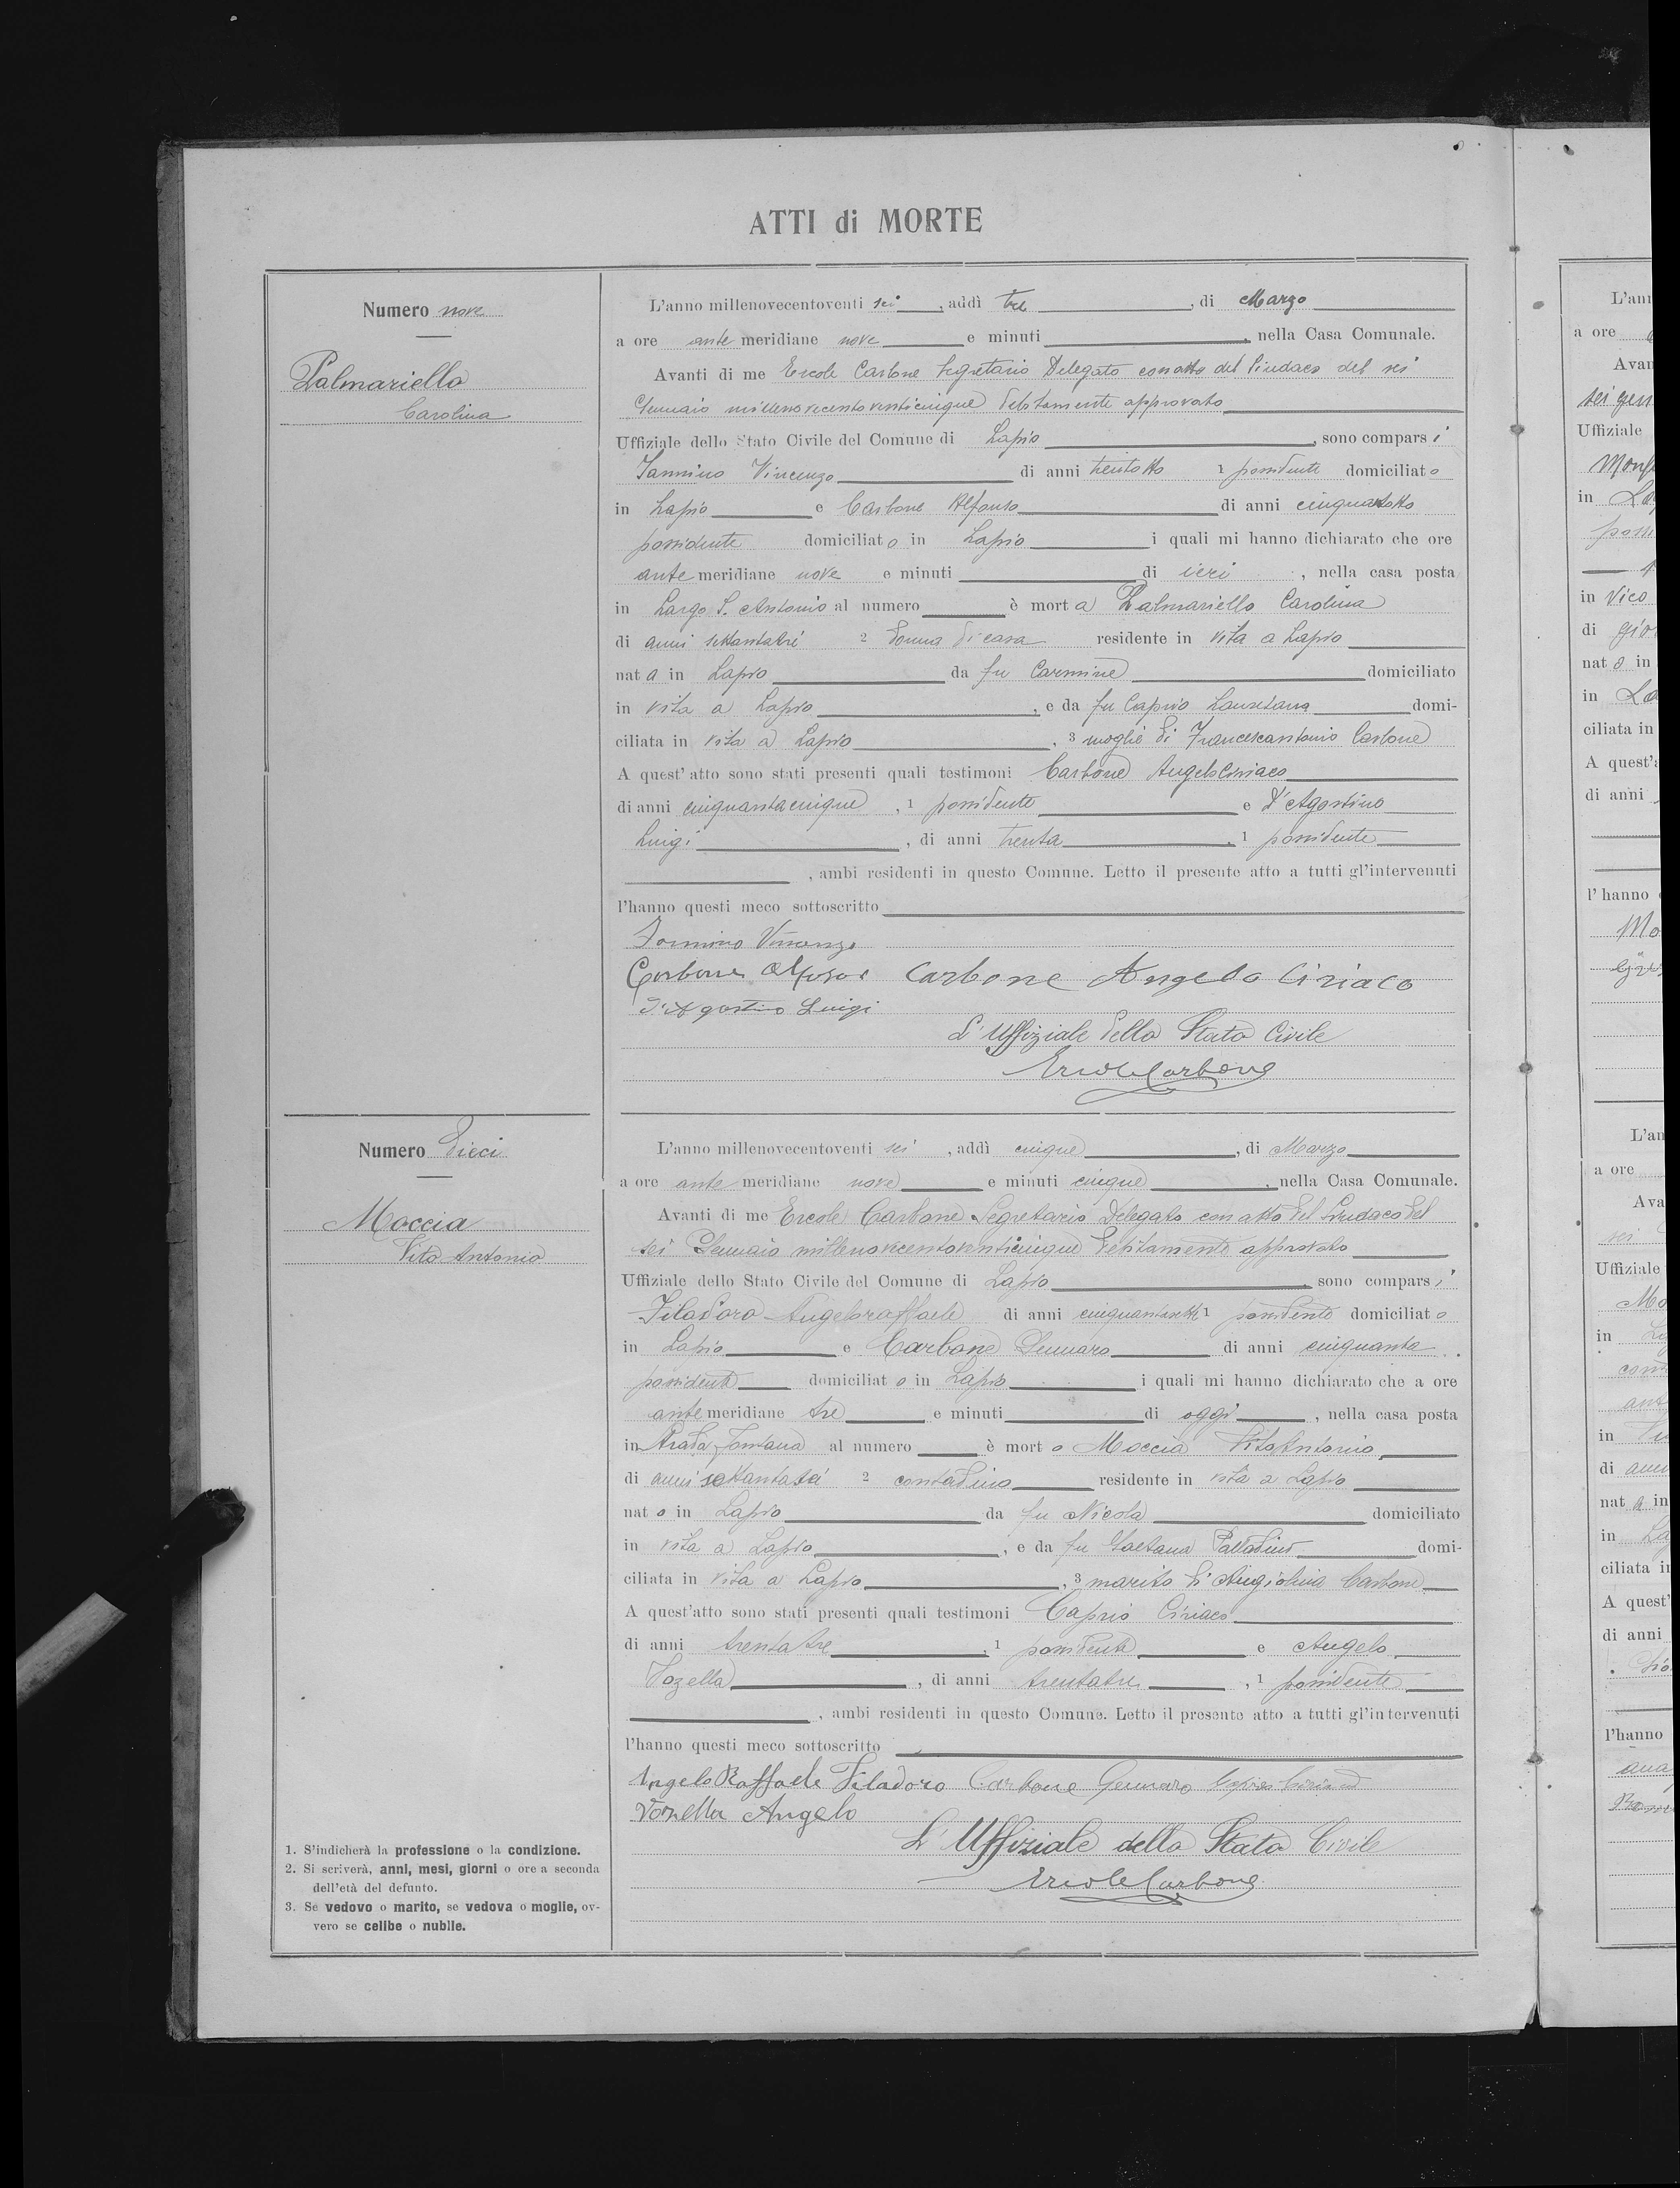 ATTI di MORTE
Numero nove
Palmariello
Carolina
L'anno millenovecentoventi sei, addì tre, di Marzo
a ore ante meridiane nove e minuti, nella Casa Comunale.
Avanti di me Ercole Carbone Segretario Delegato con atto del Sindaco del sei
Gennaio millenovecentoventicinque debitamente approvato
Uffiziale dello Stato Civile del Comune di Lapio, sono comparsi
Iannino Vincenzo di anni trentotto 1 possidente domiciliato
in Lapio e Carbone Alfonso di anni cinquantotto
possidente domiciliato in Lapio i quali mi hanno dichiarato che ore
ante meridiane nove e minuti di ieri, nella casa posta
in Largo S. Antonio al numero è morta Palmariello Carolina
di anni settantatrè 2 donna di casa residente in vita a Lapio
nata in Lapio da fu Carmine domiciliato
in vita a Lapio, e da fu Caprio Lauretana domi-
ciliata in vita a Lapio, 3 moglie di Francescantonio Carbone
A quest'atto sono stati presenti quali testimoni Carbone Angelo Ciriaco
di anni cinquantacinque, 1 possidente e D'Agostino
Luigi, di anni trenta, 1 possidente
, ambi residenti in questo Comune. Letto il presente atto a tutti gl'intervenuti
l'hanno questi meco sottoscritto
Iannino Vincenzo
Carbone Alfonso Carbone Angelo Ciriaco
D'Agostino Luigi
L'Uffiziale dello Stato Civile
Ercole Carbone
Numero Dieci
Moccia
Vito Antonio
L'anno millenovecentoventi sei, addì cinque, di Marzo
a ore ante meridiane nove e minuti cinque, nella Casa Comunale.
Avanti di me Ercole Carbone Segretario Delegato con atto del Sindaco del
sei Gennaio millenovecentoventicinque debitamente approvato
Uffiziale dello Stato Civile del Comune di Lapio sono comparsi
Filadoro Angeloraffaele di anni cinquantasette 1 possidente domiciliato
in Lapio e Carbone Gennaro di anni cinquanta
possidente domiciliato in Lapio i quali mi hanno dichiarato che a ore
ante meridiane tre e minuti di oggi, nella casa posta
in Strada Fontana al numero è morto Moccia Vito Antonio
di anni settantasei 2 contadino residente in vita a Lapio
nato in Lapio da fu Nicola domiciliato
in vita a Lapio, e da fu Gaetana Palladino domi-
ciliata in vita a Lapio, 3 marito di Angiolina Carbone
A quest'atto sono stati presenti quali testimoni Caprio Ciriaco
di anni trentatre, 1 possidente e Angelo
Vozella, di anni trentatre, 1 possidente
, ambi residenti in questo Comune. Letto il presente atto a tutti gl'intervenuti
l'hanno questi meco sottoscritto
Angelo Raffaele Filadoro Carbone Gennaro Caprio Ciriaco
Vozzella Angelo
L'Uffiziale dello Stato Civile
Ercole Carbone
1. S'indicherà la professione o la condizione.
2. Si scriverà, anni, mesi, giorni o ore a seconda
dell'età del defunto.
3. Se vedovo o marito, se vedova o moglie, ov-
vero se celibe o nubile.
L'an
a ore
Avan
sei gen
Uffiziale
in
in Vico
di
nat o in
in
ciliata in
A quest'a
di anni
l'hanno
Mo
L'an
a ore
Ava
Uffiziale
Mo
in
in
di anni
nat a in
in
ciliata in
A quest'
di anni
l'hanno